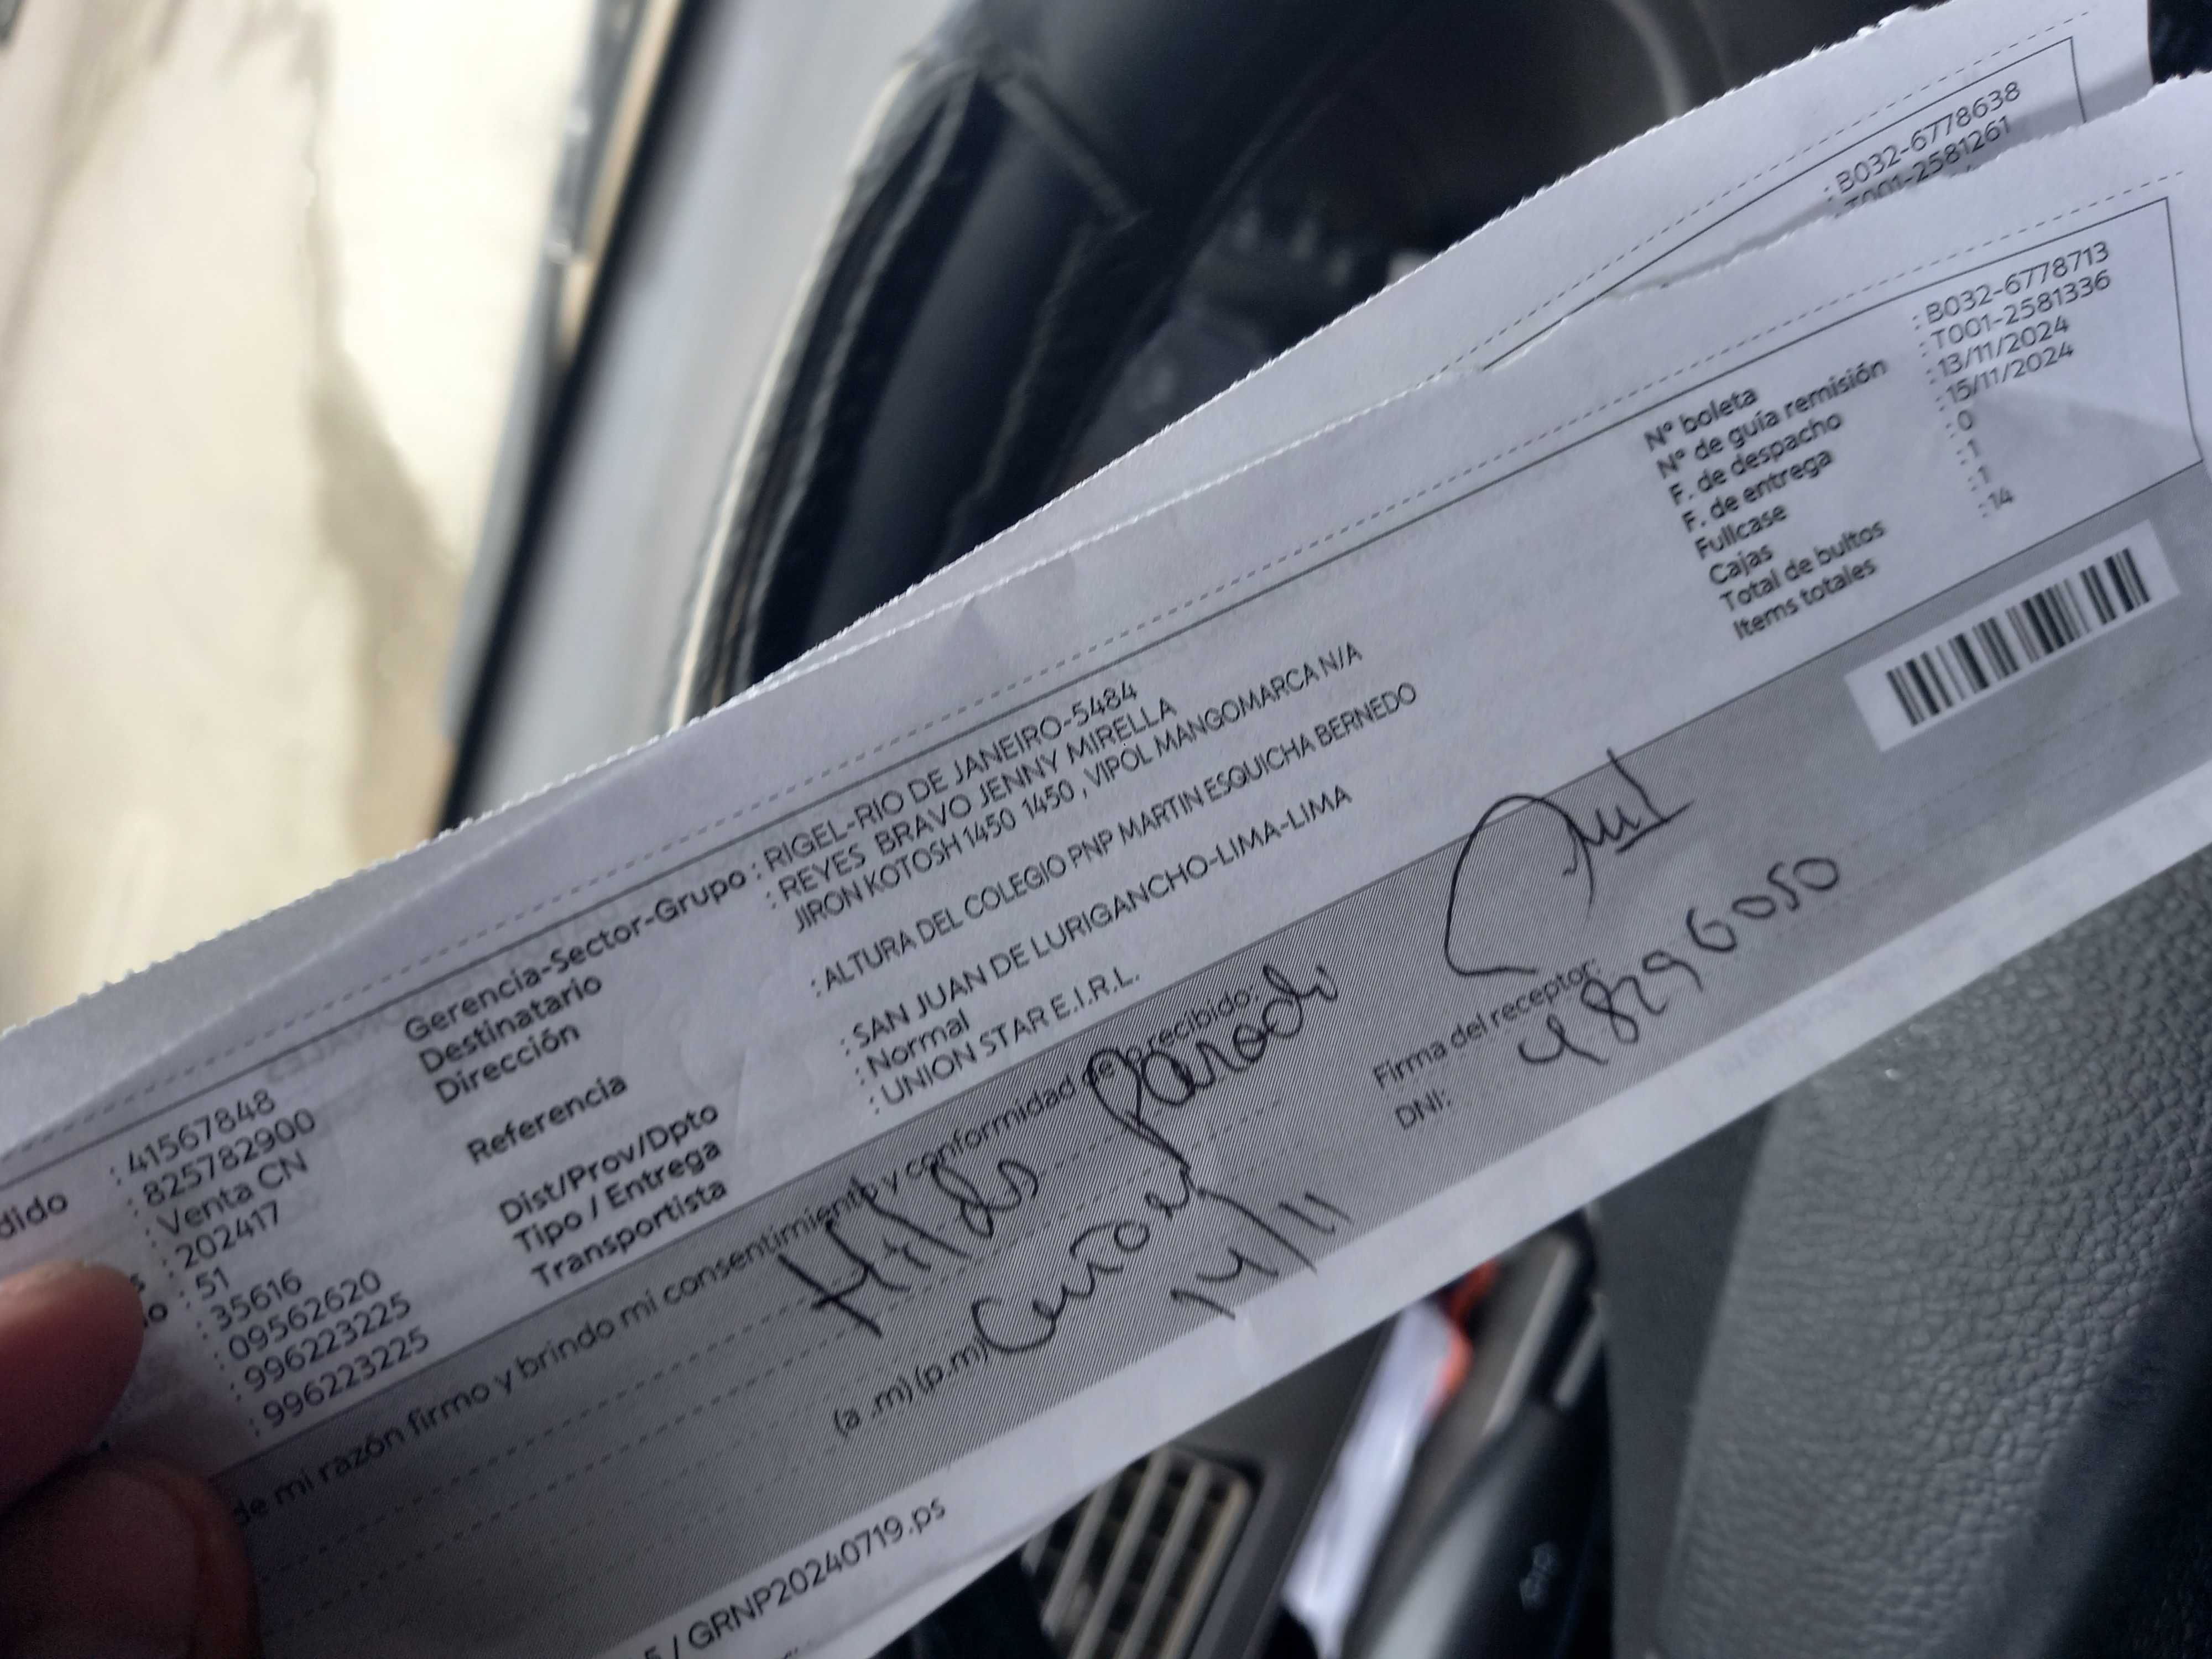 : B032-6778638
: T001-2581261
dido : 41567848
: 825782900
: Venta CN
: 202417
: 51
: 35616
: 09562620
: 996223225
: 996223225
Gerencia-Sector-Grupo : RIGEL-RIO DE JANEIRO-5484
Destinatario : REYES BRAVO JENNY MIRELLA
Dirección JIRON KOTOSH 1450 1450 , VIPOL MANGOMARCA N/A
Referencia : ALTURA DEL COLEGIO PNP MARTIN ESQUICHA BERNEDO
Dist/Prov/Dpto : SAN JUAN DE LURIGANCHO-LIMA-LIMA
Tipo / Entrega : Normal
Transportista : UNION STAR E.I.R.L.
N° boleta : B032-6778713
N° de guía remisión : T001-2581336
F. de despacho : 13/11/2024
F. de entrega : 15/11/2024
Fullcase : 0
Cajas : 1
Total de bultos : 1
Items totales : 14
de mi razón firmo y brindo mi consentimiento y conformidad de lo recibido:
Hilda Parodi
(a .m) (p.m)
14/11
Firma del receptor:
DNI: 48296050
5 / GRNP20240719.ps